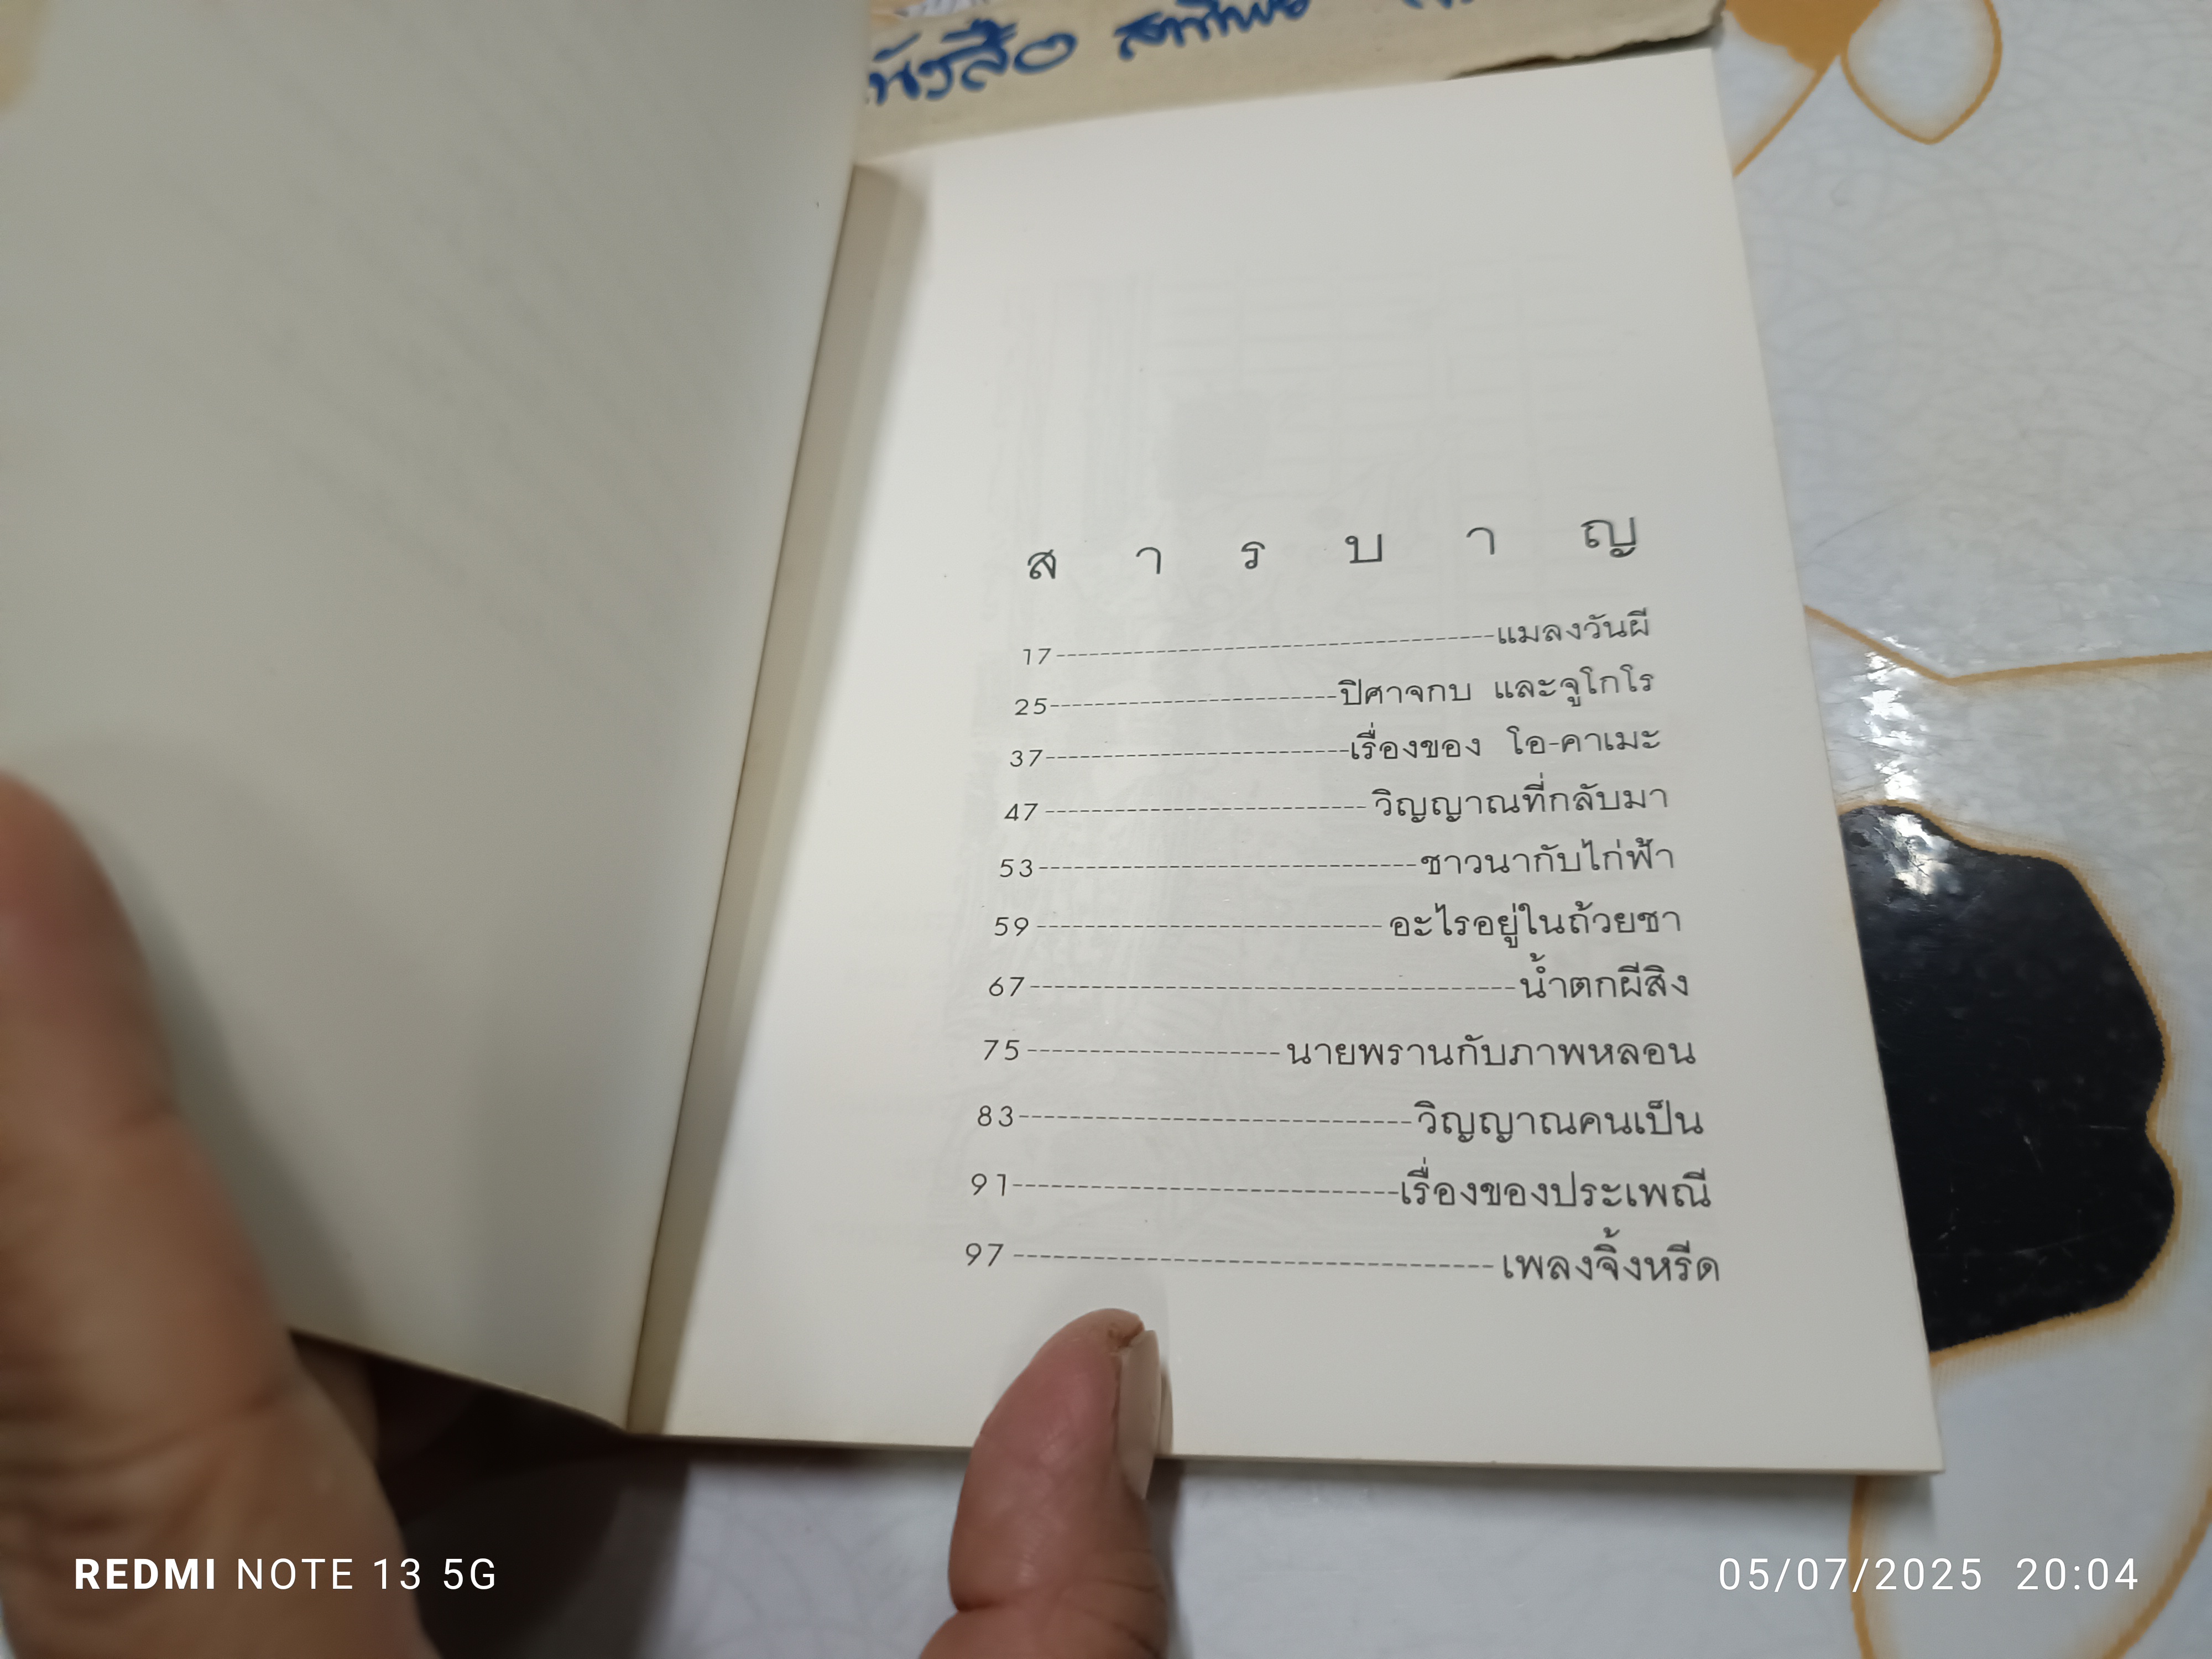 หนังสือ
ส า ร บ า ญ
17 แมลงวันผี
25 ปิศาจกบ และจูโกโร
37 เรื่องของ โอ-คาเมะ
47 วิญญาณที่กลับมา
53 ชาวนากับไก่ฟ้า
59 อะไรอยู่ในถ้วยชา
67 น้ำตกผีสิง
75 นายพรานกับภาพหลอน
83 วิญญาณคนเป็น
91 เรื่องของประเพณี
97 เพลงจิ้งหรีด
REDMI NOTE 13 5G
05/07/2025 20:04